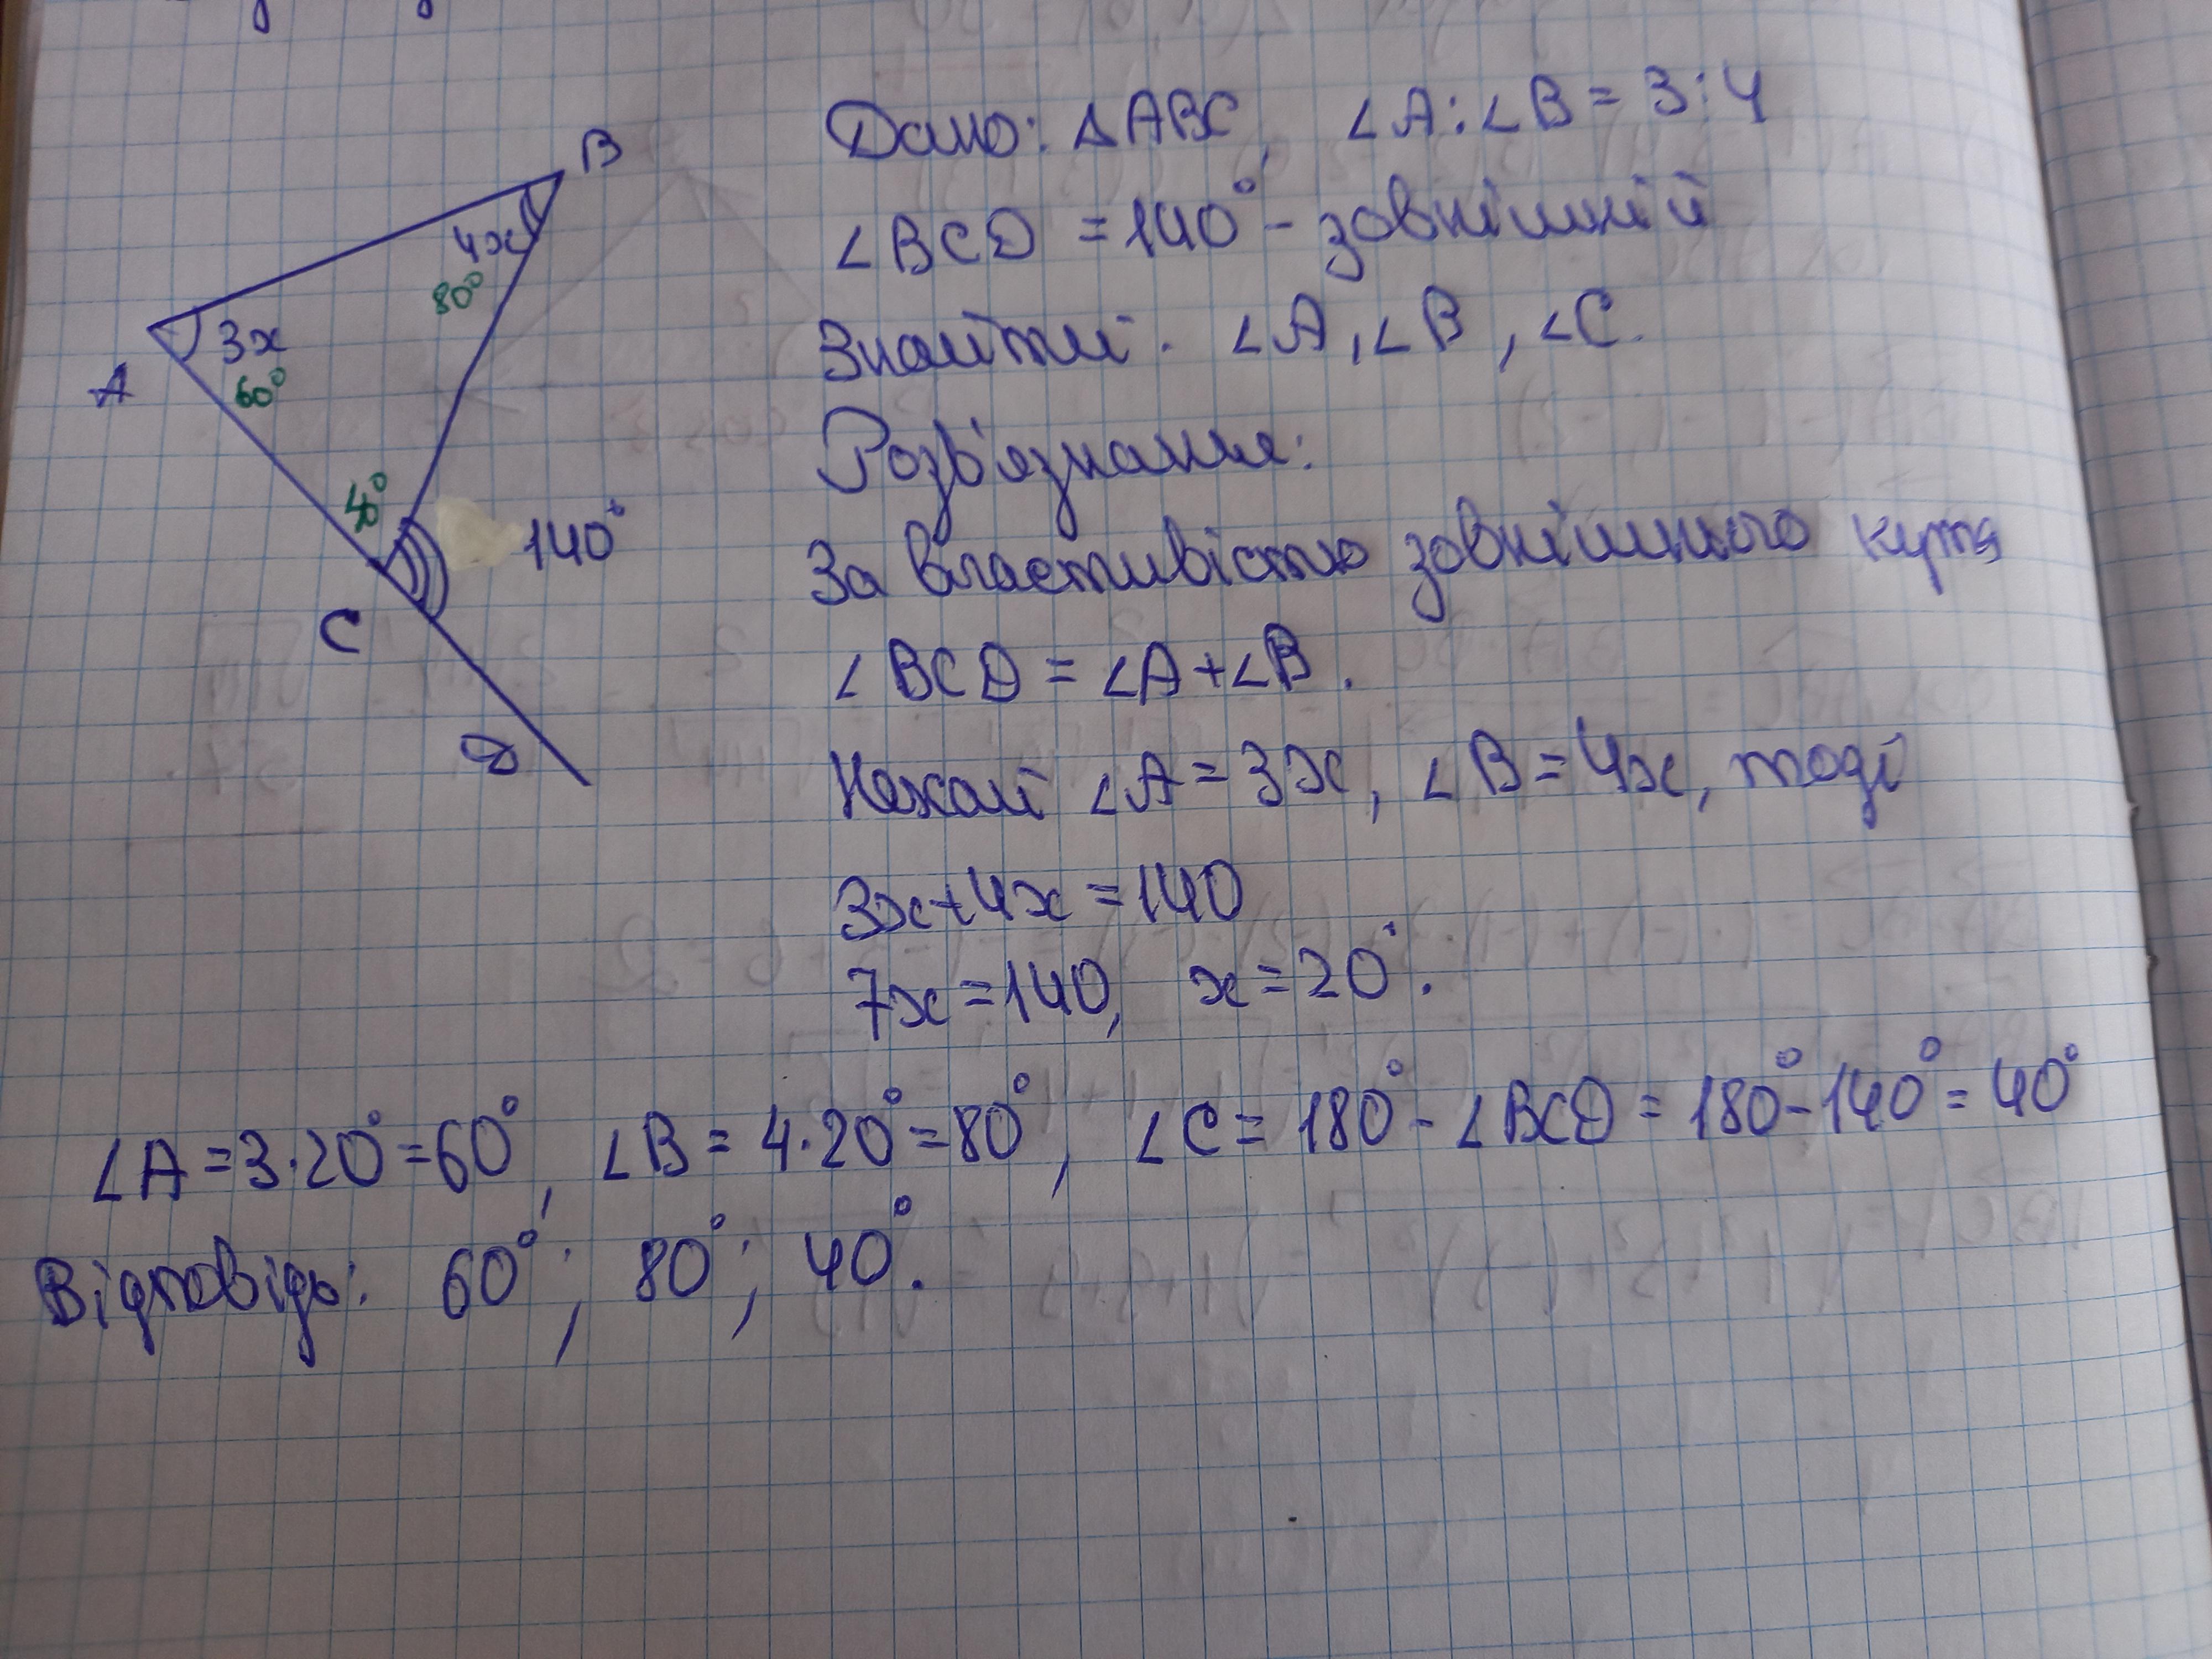 B
4x
80°
3x
A
60°
40°
140°
C
D
Дано: △ABC, ∠A:∠B = 3:4
∠BCD = 140° - зовнішній
Знайти: ∠A, ∠B, ∠C.
Розв'язання:
За властивістю зовнішнього кута
∠BCD = ∠A+∠B.
Нехай ∠A = 3x, ∠B = 4x, тоді
3x+4x = 140
7x = 140, x = 20°.
∠A = 3·20° = 60°, ∠B = 4·20° = 80°, ∠C = 180° - ∠BCD = 180° - 140° = 40°
Відповідь: 60°; 80°; 40°.